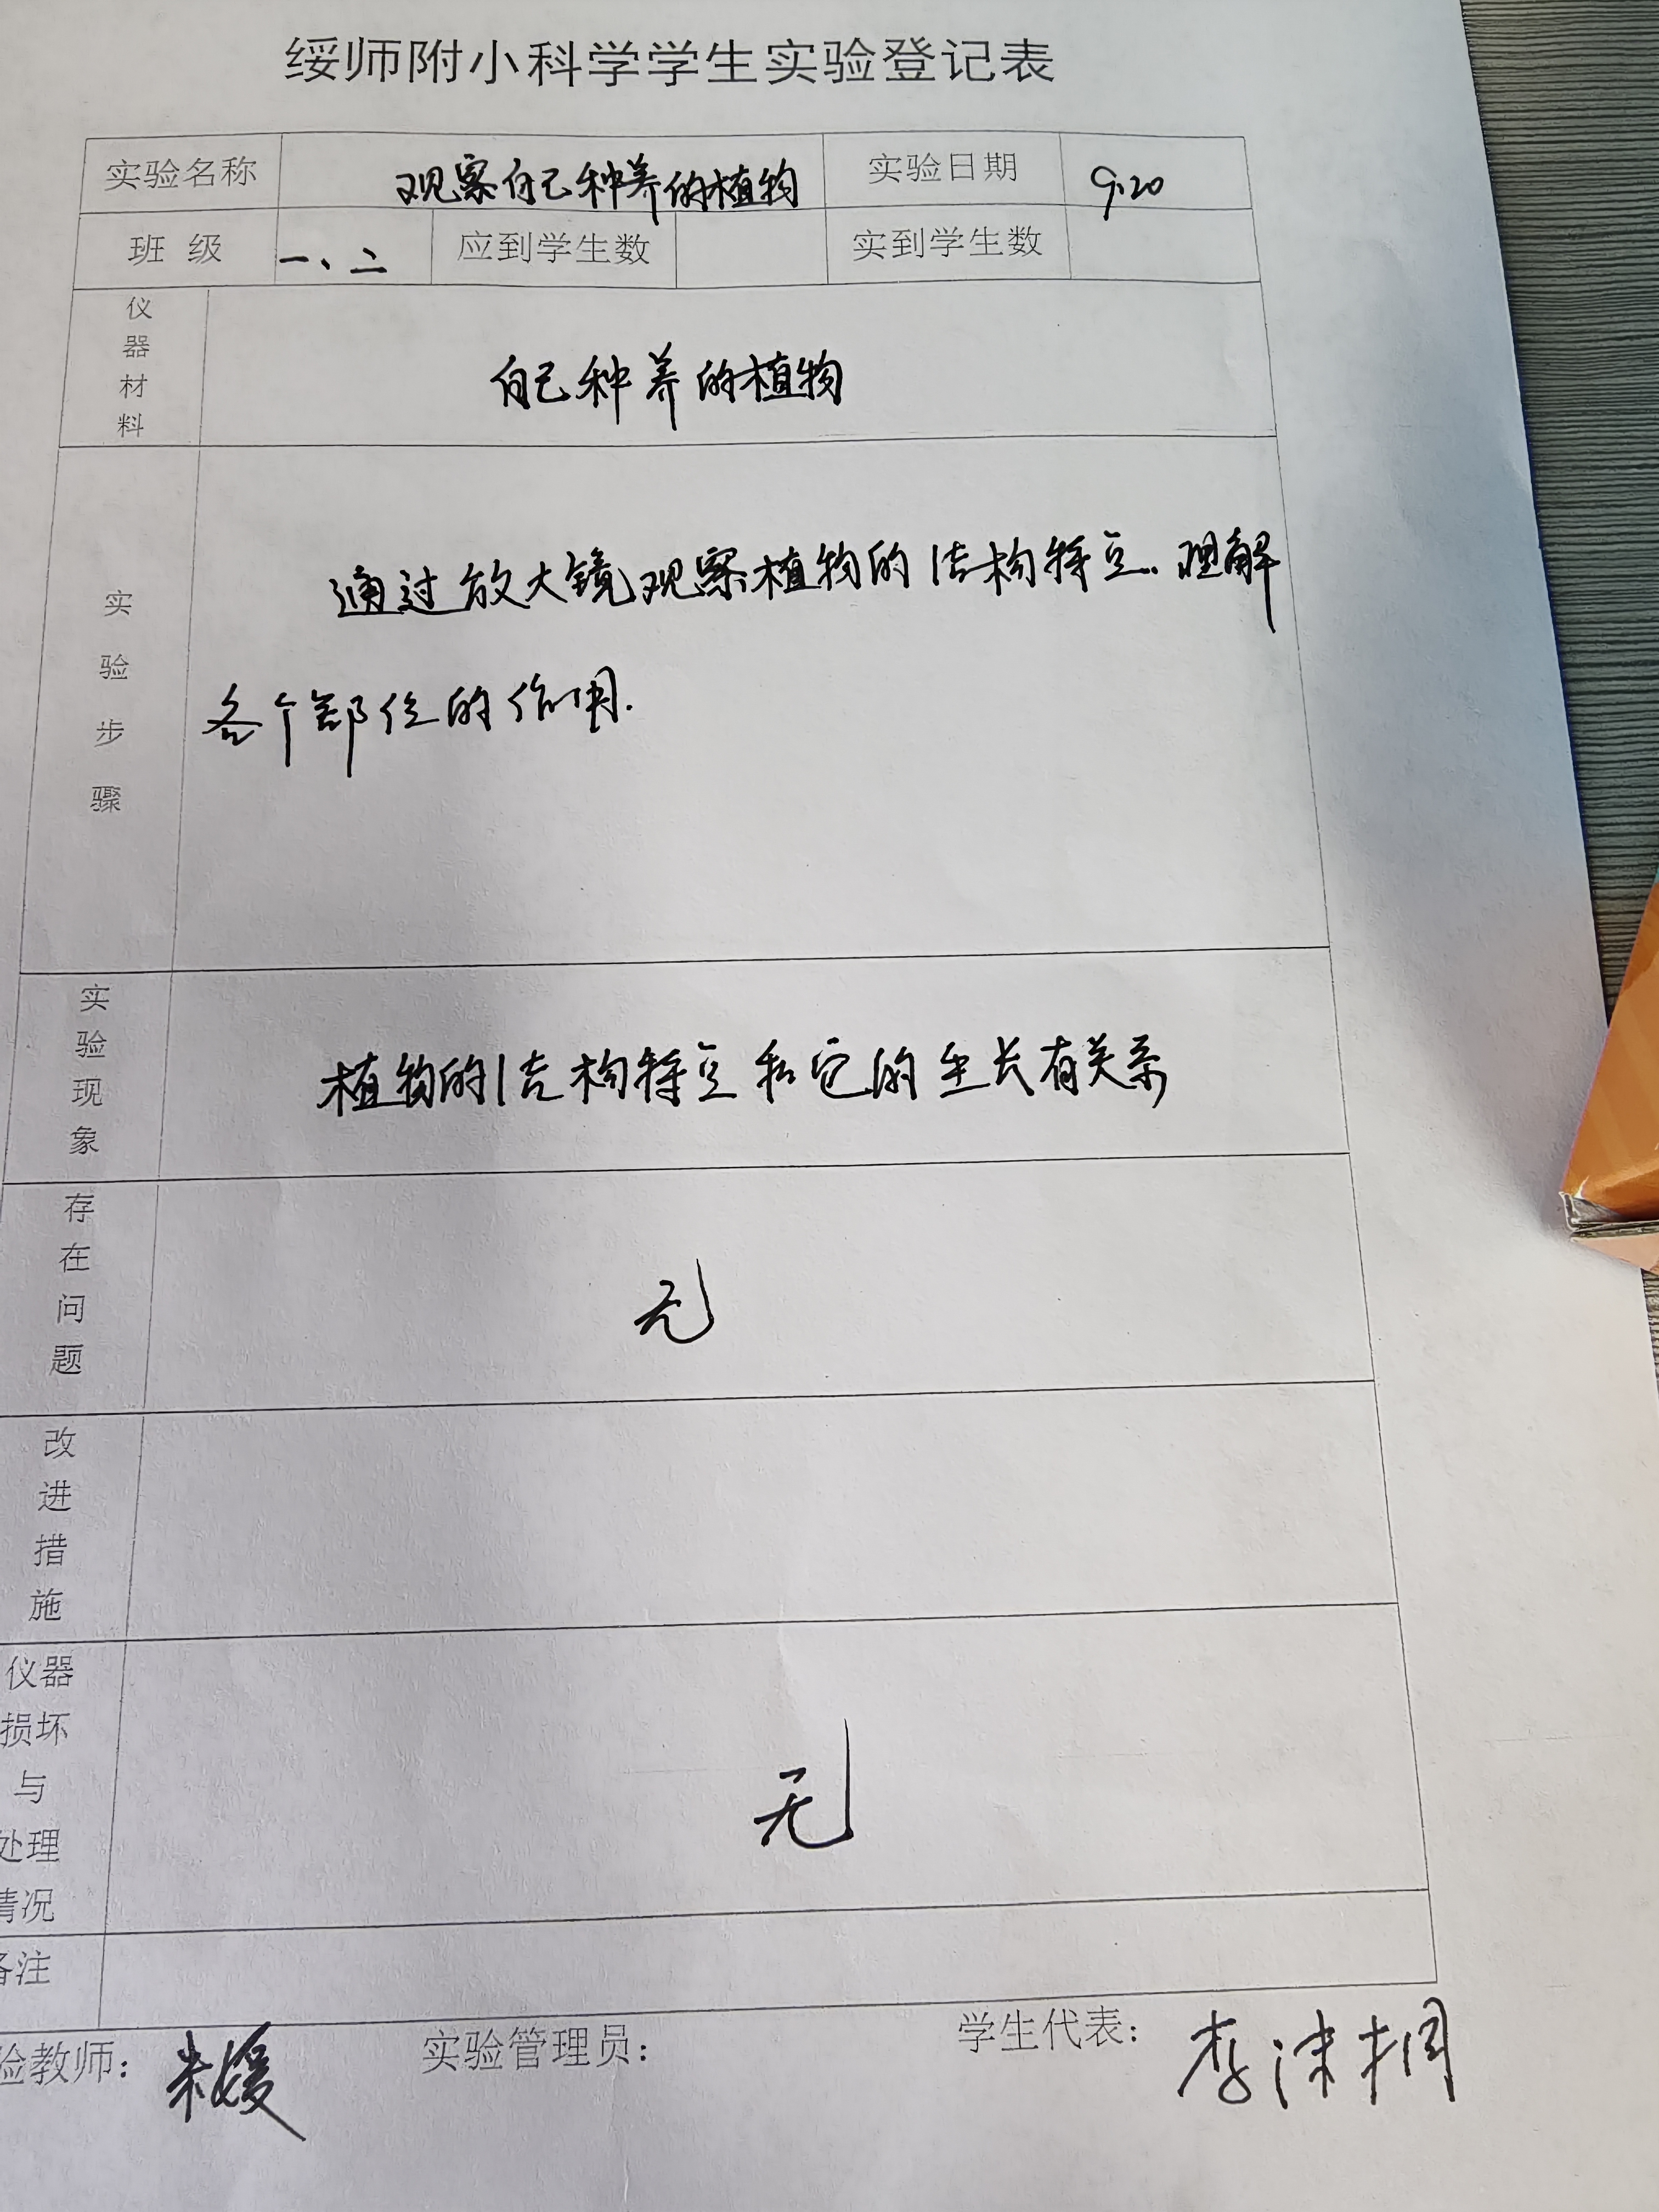 绥师附小科学学生实验登记表
实验名称 观察自己种养的植物 实验日期 9.20
班 级 一、二 应到学生数 实到学生数
仪器材料 自己种养的植物
实验步骤 通过放大镜观察植物的结构特点.理解
各个部位的作用.
实验现象 植物的结构特点和它的生长有关系
存在问题 无
改进措施
仪器
损坏
与
处理
情况 无
备注
验教师: 实验管理员: 学生代表: 李沫桐